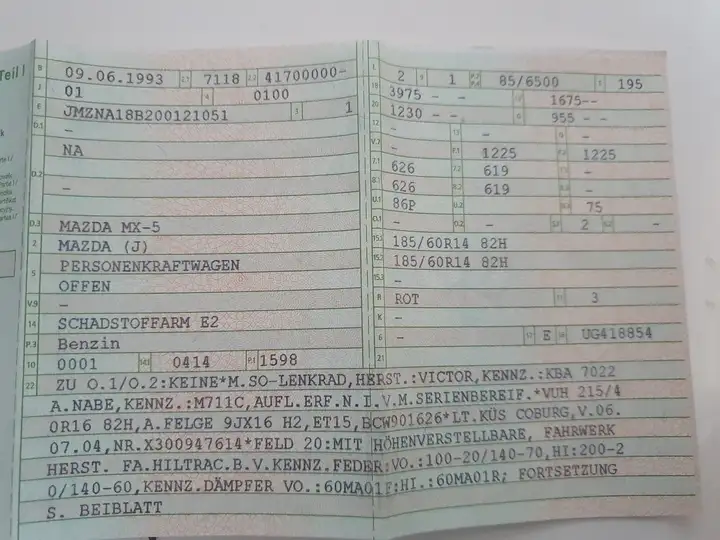 Teil I
B 09.06.1993 2.1 7118 2.2 41700000-
J 01 4 0100
E JMZNA18B200121051 3 1
D.1 -
NA
D.2
-
D.3 MAZDA MX-5
2 MAZDA (J)
5 PERSONENKRAFTWAGEN
OFFEN
V.9 -
14 SCHADSTOFFARM E2
P.3 Benzin
10 0001 14.1 0414 P.1 1598
L 2 9 1 85/6500 T 195
18 3975 - - 19 1675--
20 1230 - - G 955 - -
12 - 13 - Q -
V.7 - F.1 1225 F.2 1225
7.1 626 7.2 619 7.3 -
8.1 626 8.2 619 8.3 -
U.1 86P U.2 U.3 75
O.1 - O.2 - S.1 2 S.2 -
15.1 185/60R14 82H
15.2 185/60R14 82H
15.3 -
R ROT 11 3
K -
6 - 17 E 16 UG418854
21
22 ZU O.1/O.2:KEINE*M.SO-LENKRAD,HERST.:VICTOR,KENNZ.:KBA 7022
A.NABE,KENNZ.:M711C,AUFL.ERF.N.I.V.M.SERIENBEREIF.*VUH 215/4
0R16 82H,A.FELGE 9JX16 H2,ET15,BCW901626*LT.KÜS COBURG,V.06.
07.04,NR.X300947614*FELD 20:MIT HÖHENVERSTELLBARE, FAHRWERK
HERST. FA.HILTRAC.B.V.KENNZ.FEDER:VO.:100-20/140-70,HI:200-2
0/140-60,KENNZ.DÄMPFER VO.:60MA01F:HI.:60MA01R; FORTSETZUNG
S. BEIBLATT